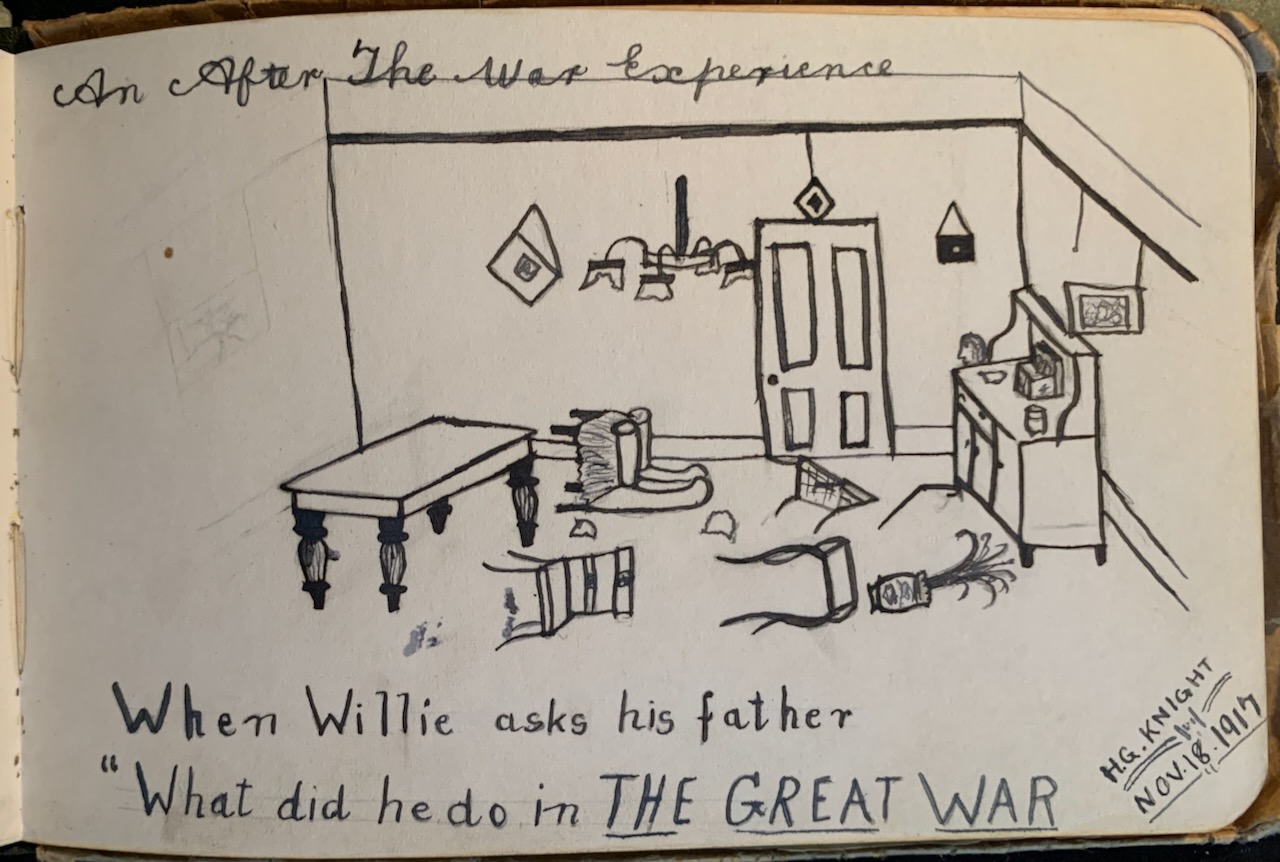 An After The War Experience
When Willie asks his father
"What did he do in THE GREAT WAR
H.G. KNIGHT
NOV. 18. 1917